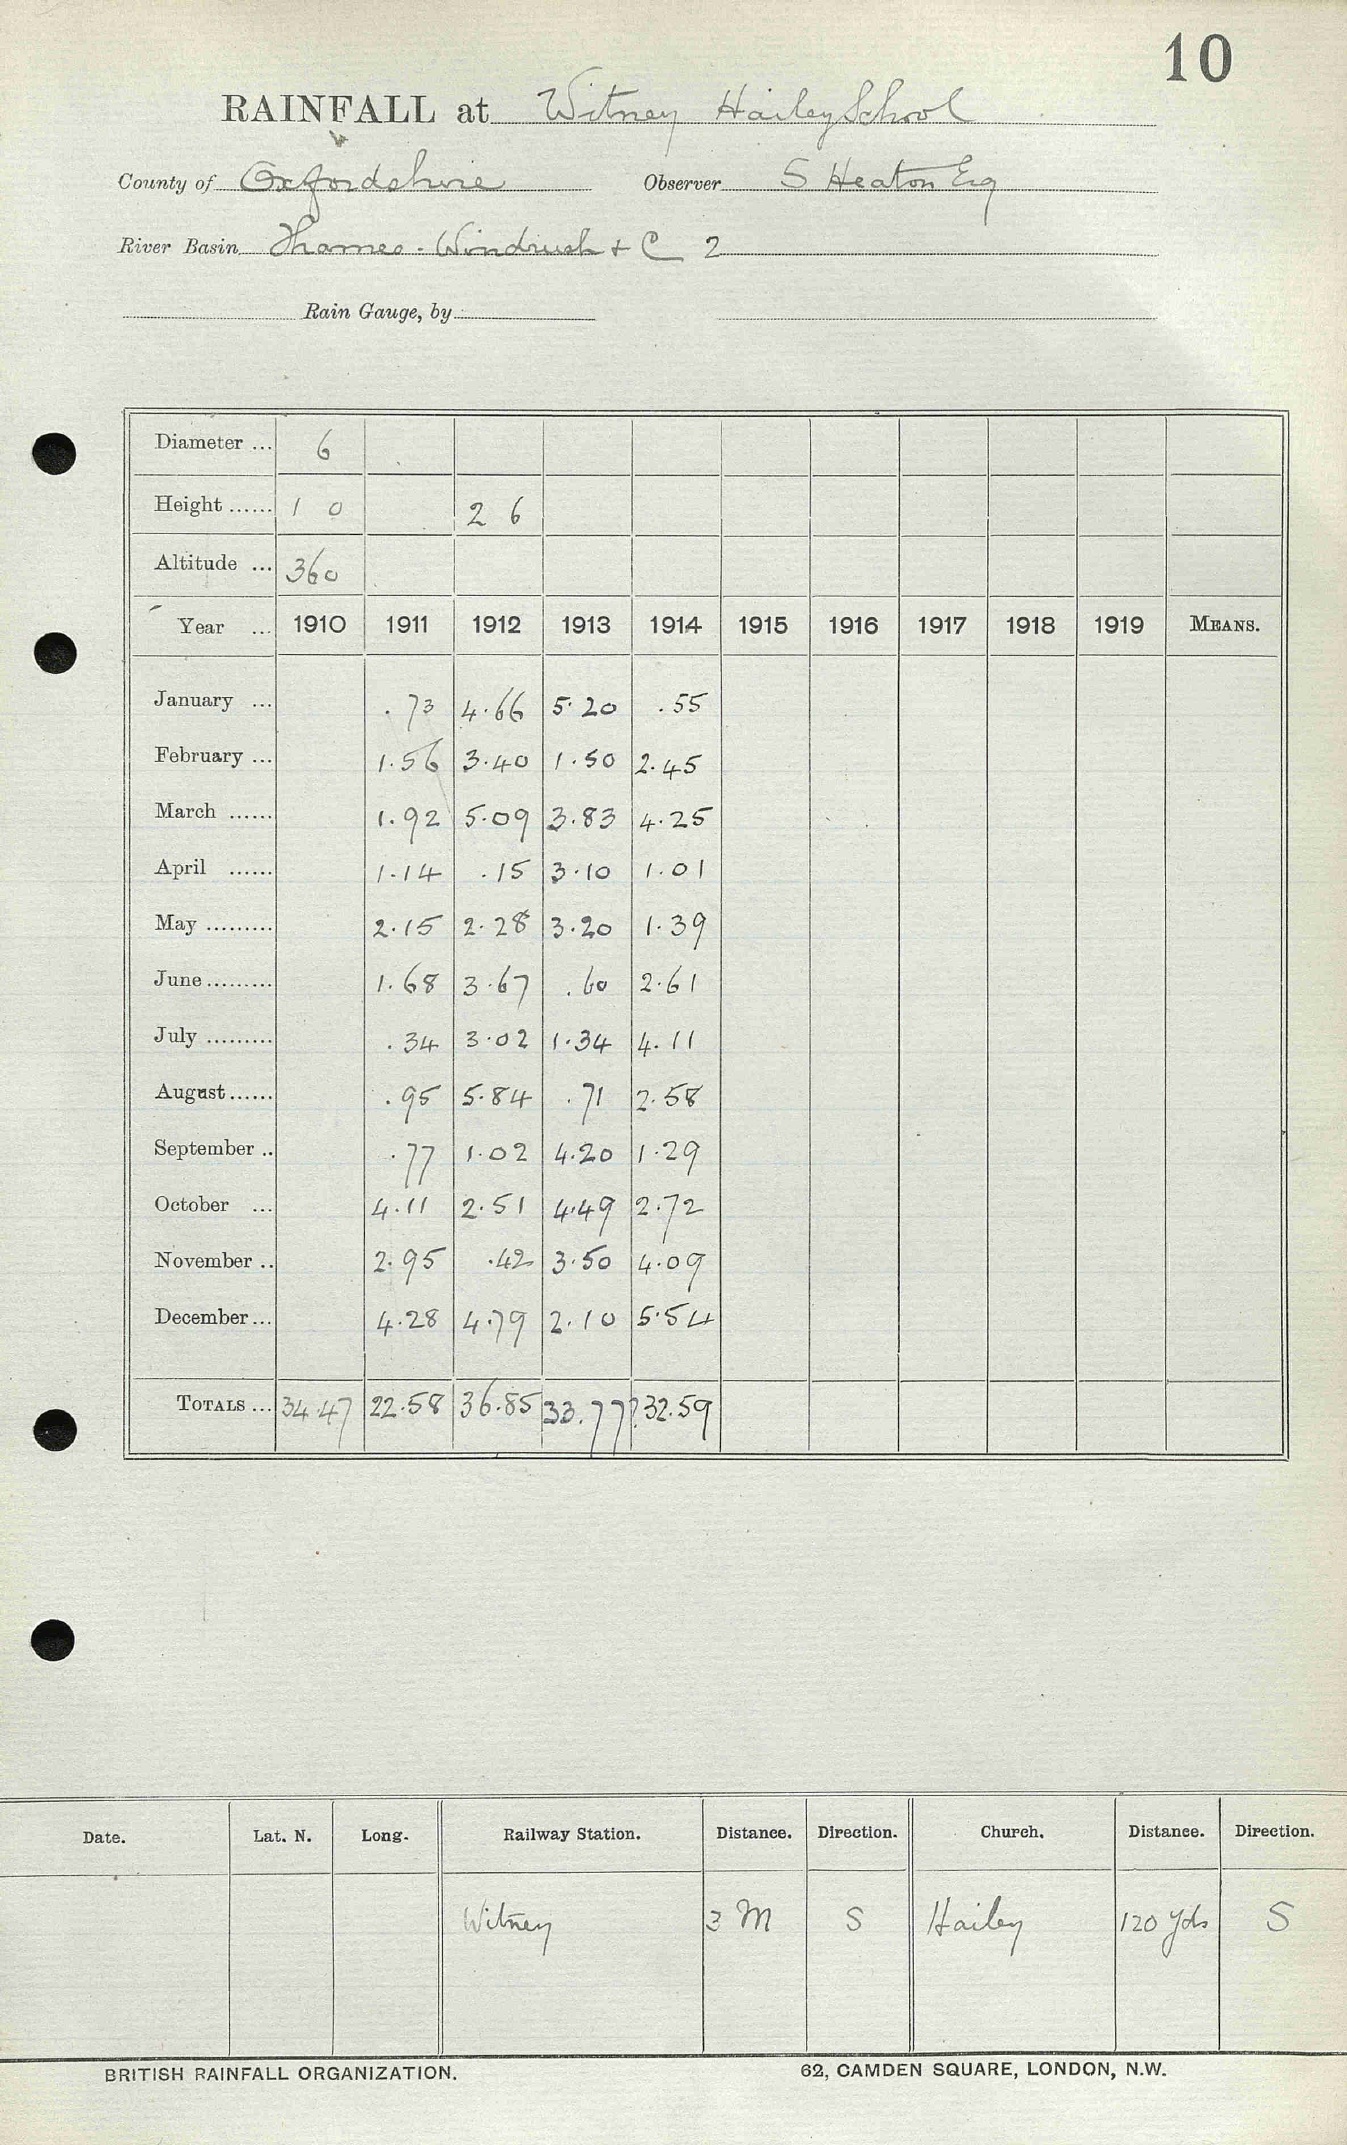 10
RAINFALL at Witney Hailey School
County of Oxfordshire Observer S Heaton Esq
River Basin Thames - Windrush + C 2
Rain Gauge, by
Diameter ... 6
Height ...... 1 0 2 6
Altitude ... 360
Year ... 1910 1911 1912 1913 1914 1915 1916 1917 1918 1919 MEANS.
January ... .73 4.66 5.20 .55
February ... 1.56 3.40 1.50 2.45
March ...... 1.92 5.09 3.83 4.25
April ...... 1.14 .15 3.10 1.01
May ......... 2.15 2.28 3.20 1.39
June ......... 1.68 3.67 .60 2.61
July ......... .34 3.02 1.34 4.11
August ...... .95 5.84 .71 2.58
September .. .77 1.02 4.20 1.29
October ... 4.11 2.51 4.49 2.72
November .. 2.95 .42 3.50 4.09
December ... 4.28 4.79 2.10 5.54
TOTALS ... 34.47 22.58 36.85 33.77? 32.59
Date. Lat. N. Long. Railway Station. Distance. Direction. Church. Distance. Direction.
Witney 3 M S Hailey 120 yds S
BRITISH RAINFALL ORGANIZATION. 62, CAMDEN SQUARE, LONDON, N.W.